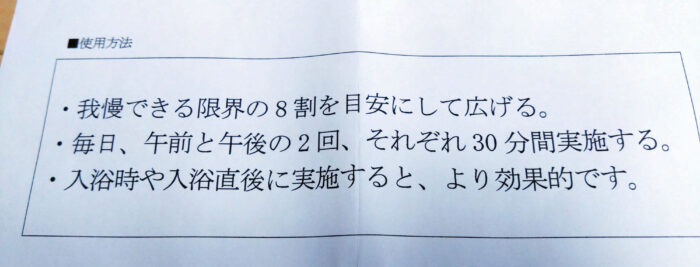 ■使用方法
・我慢できる限界の8割を目安にして広げる。
・毎日、午前と午後の2回、それぞれ30分間実施する。
・入浴時や入浴直後に実施すると、より効果的です。